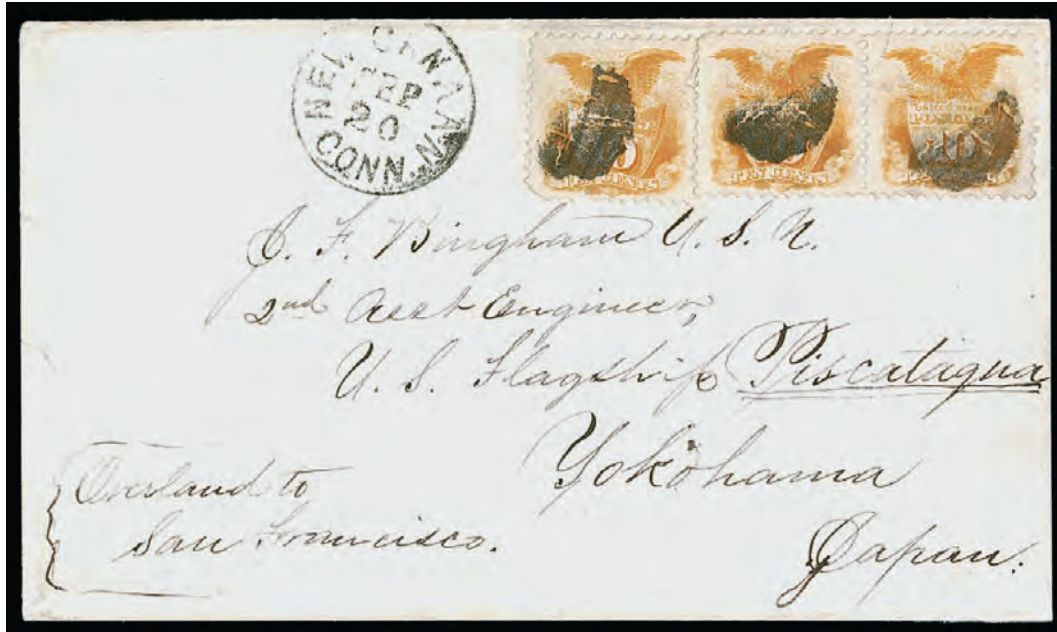 NEW CANAAN
FEB
20
CONN.
10
10
TEN CENTS
TEN CENTS
TEN CENTS
J. F. Bingham U. S. N.
2nd Asst Engineer,
U. S. Flagship Piscataqua
Yokohama
Japan.
Overland to
San Francisco.